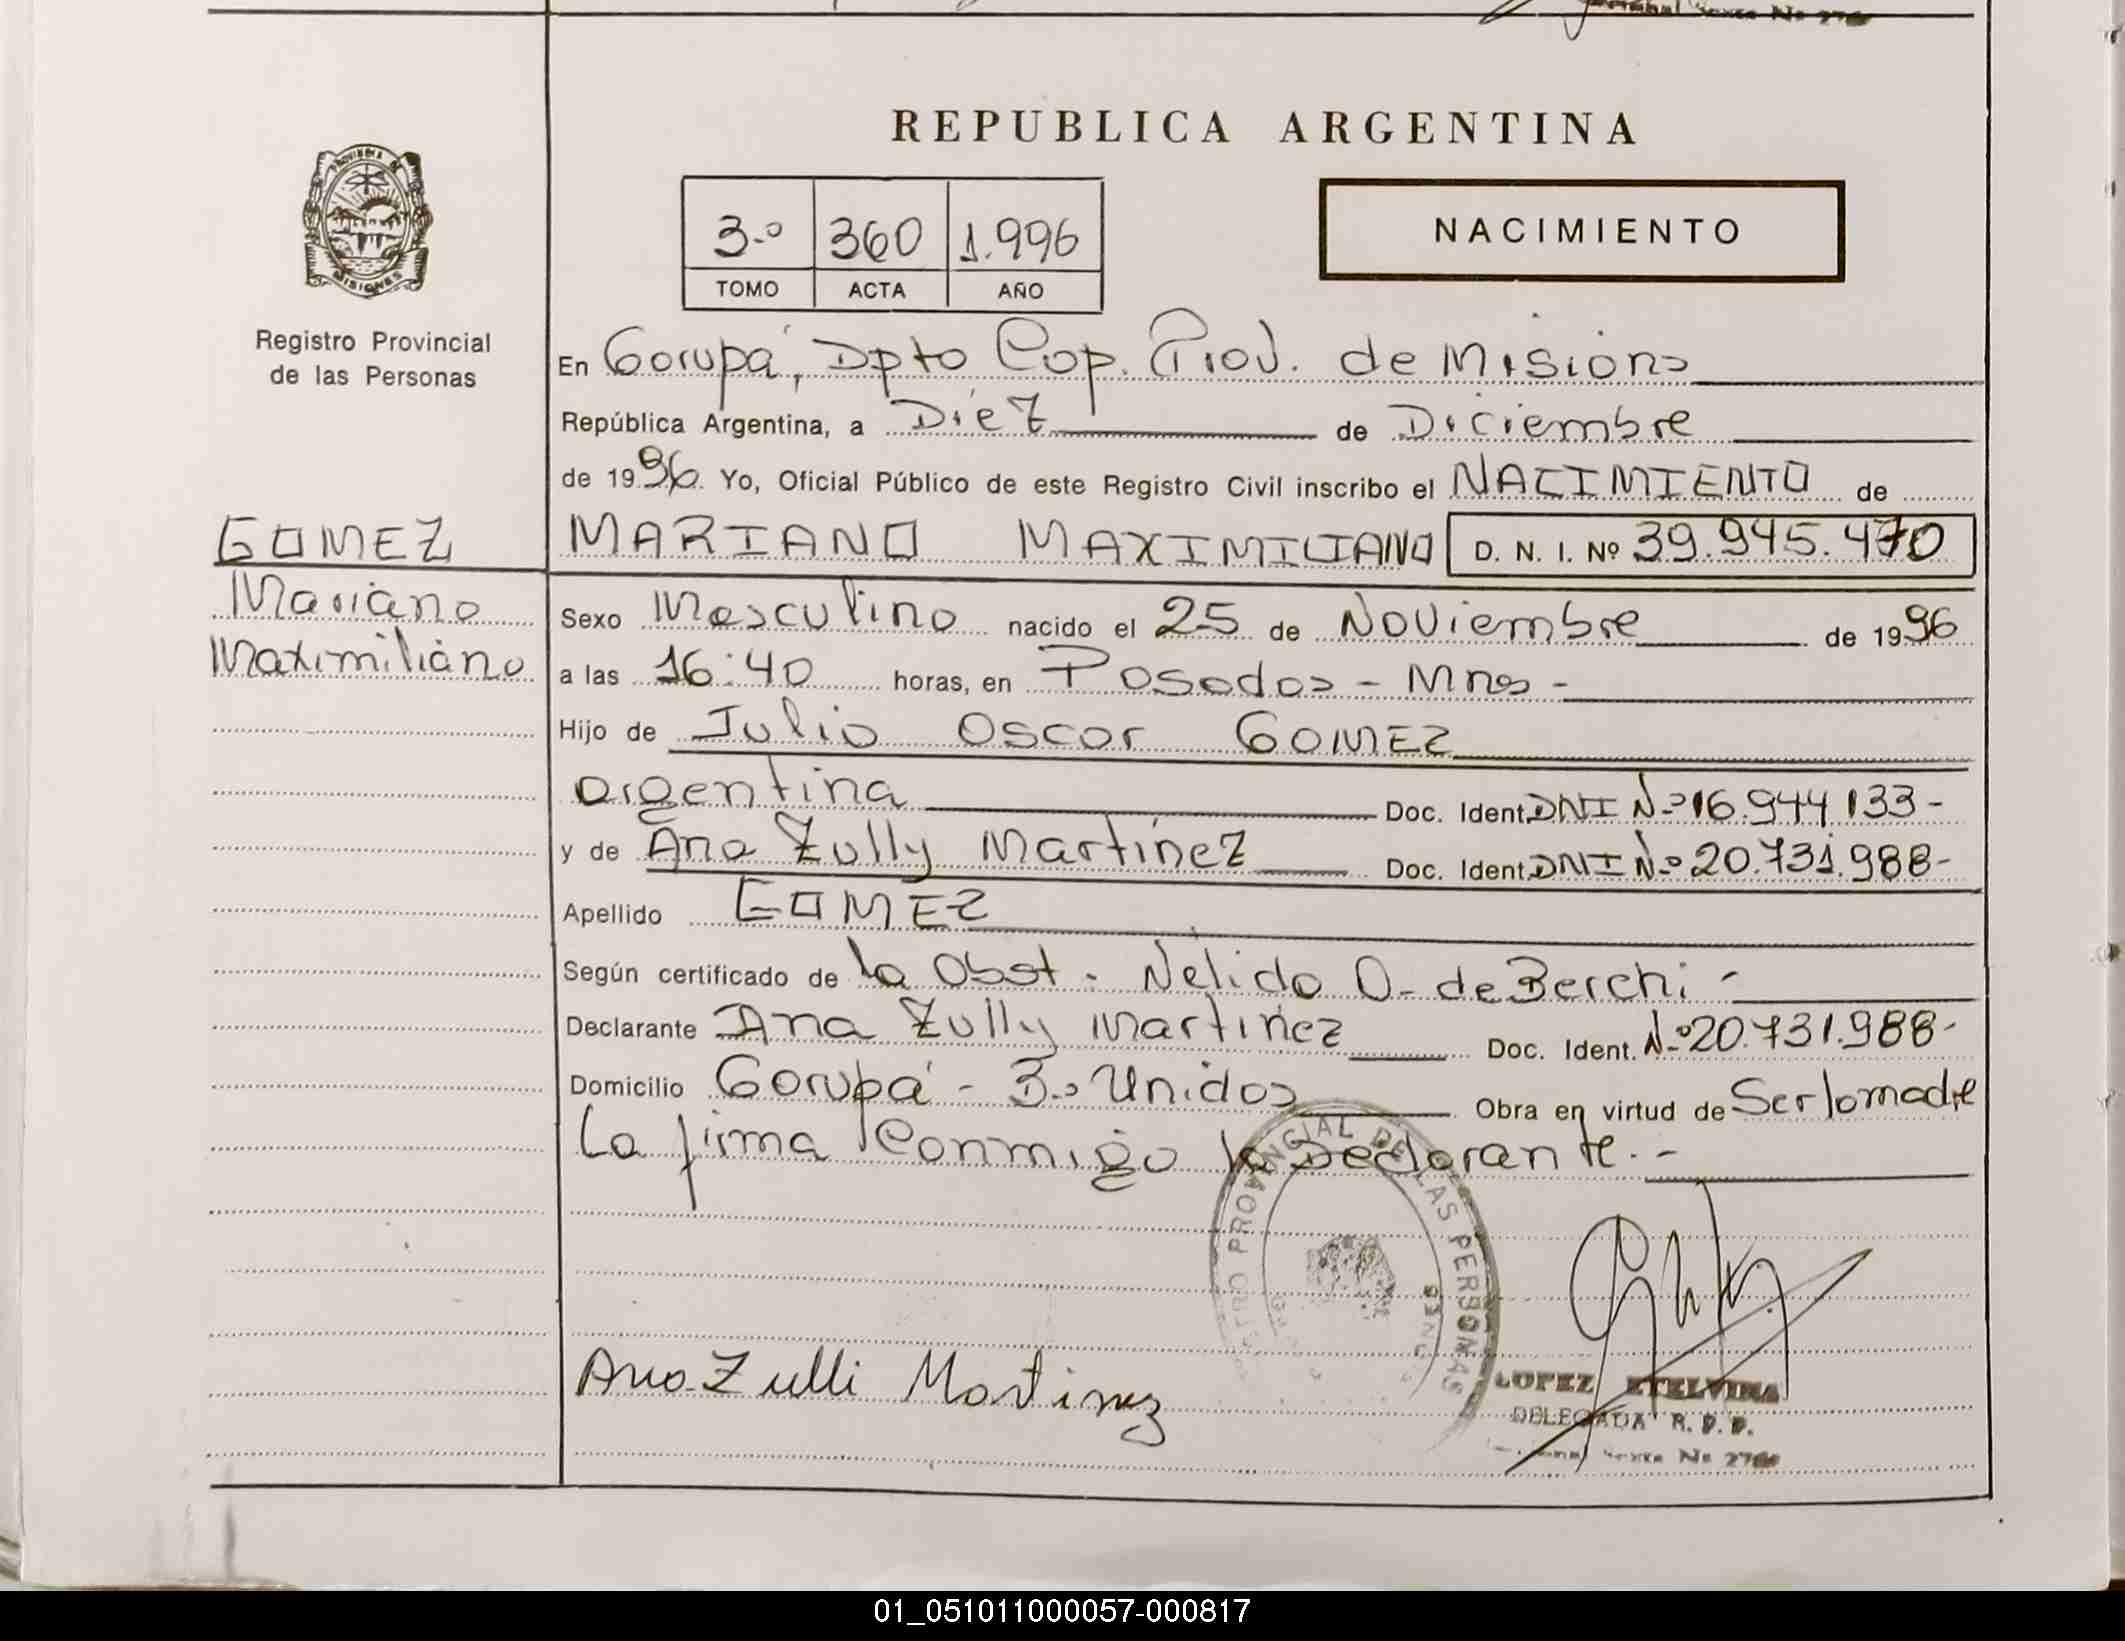 REPUBLICA ARGENTINA
PROVINCIA DE
MISIONES
Registro Provincial
de las Personas
3.º 360 1.996
TOMO ACTA AÑO
NACIMIENTO
En Garupá, Dpto Cap. Prov. de Misions
República Argentina, a Diez de Diciembre
de 1996. Yo, Oficial Público de este Registro Civil inscribo el NACIMIENTO de
GOMEZ
Mariano
Maximiliano
MARIANO MAXIMILIANO D. N. I. Nº 39.945.470
Sexo Masculino nacido el 25 de Noviembre de 1996
a las 16:40 horas, en Posadas - Mnes -
Hijo de Julio Oscar GOMEZ
argentina Doc. Ident. DNI Nº 16.944.133-
y de Ana Zully Martínez Doc. Ident. DNI Nº 20.731.988-
Apellido GOMEZ
Según certificado de la Obst. Nélida O. de Berchi -
Declarante Ana Zully Martínez Doc. Ident. Nº 20.731.988-
Domicilio Garupá - B.º Unidos Obra en virtud de Ser la madre
La firma Conmigo la Declarante. -
REGISTRO PROVINCIAL DE LAS PERSONAS
Ana Zulli Martinez
LOPEZ ETELVINA
DELEGADA R. P. P.
Nº 2766
01_051011000057-000817